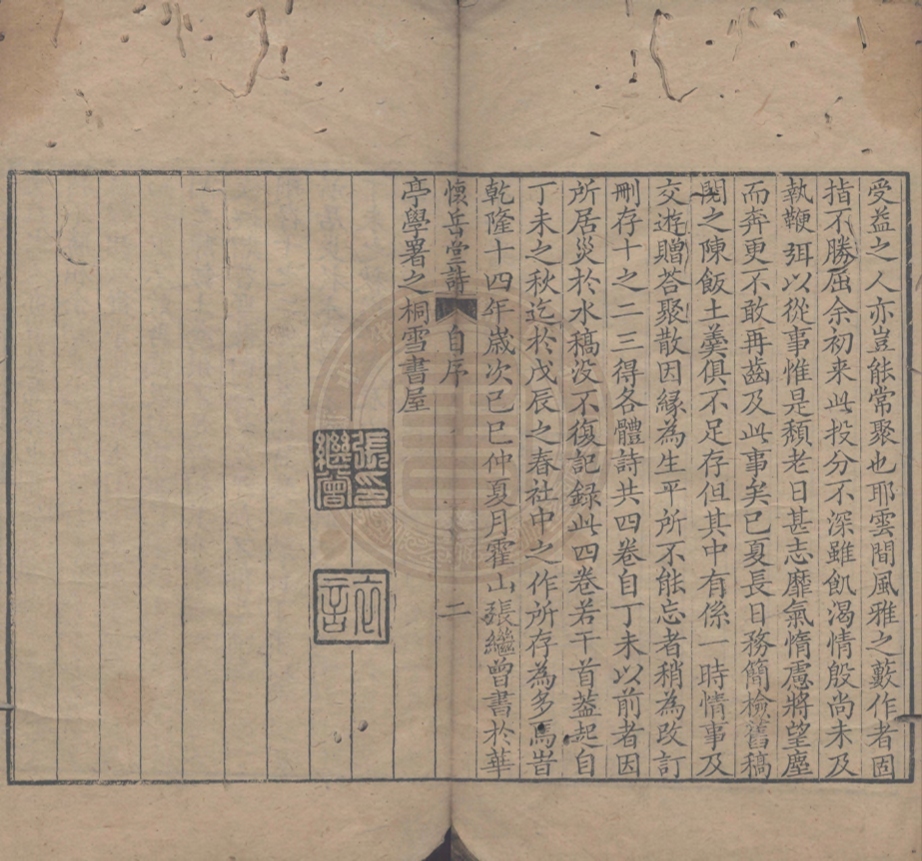 受益之人亦豈能常聚也耶雲間風雅之藪作者固
指不勝屈余初来此投分不深雖飢渴情殷尚未及
執鞭弭以從事惟是頹老日甚志靡氣惰慮將望塵
而奔更不敢再齒及此事矣已夏長日務簡檢舊稿
閱之陳飯土羮俱不足存但其中有係一時情事及
交遊贈荅聚散因縁為生平所不能忘者稍為改訂
刪存十之二三得各體詩共四卷自丁未以前者因
所居災於水稿没不復記録此四卷若干首葢起自
丁未之秋迄於戊辰之春社中之作所存為多焉旹
乾隆十四年歲次己巳仲夏月霍山張繼曾書於華
懷岳堂詩 自序 二
亭學署之桐雪書屋
張印繼曾